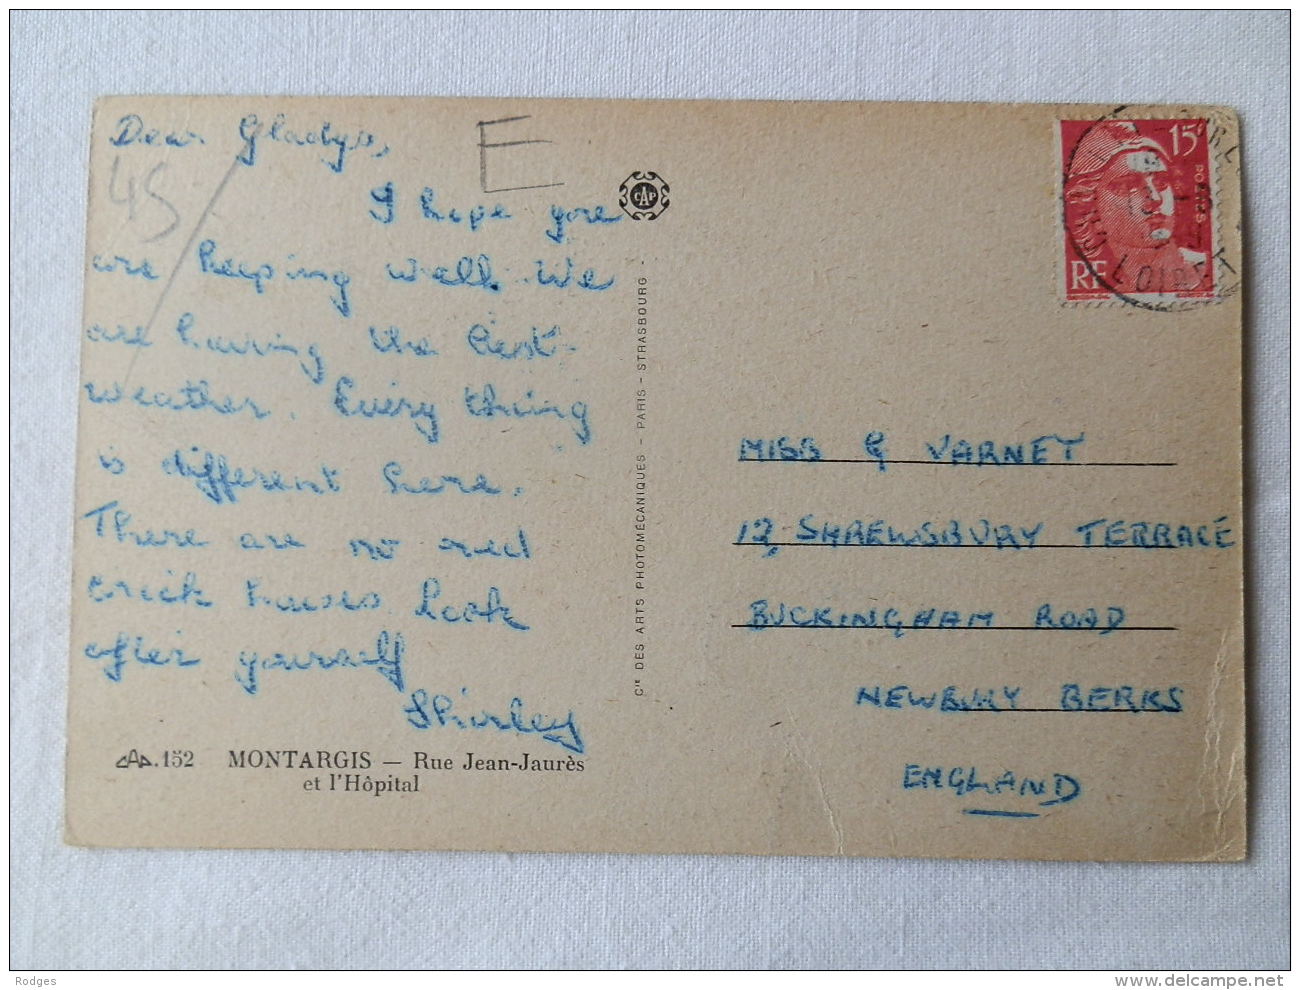 Dear Gladys,
45
E
I hope you
are keeping well. We
are having the best
weather. Every thing
is different here.
There are no red
brick houses Look
after yourself
Shirley
CAP.152 MONTARGIS — Rue Jean-Jaurès
et l'Hôpital
CAP
Cie DES ARTS PHOTOMÉCANIQUES - PARIS - STRASBOURG -
15F
POSTES
RF
LOIRET
MISS G VARNEY
12, SHREWSBURY TERRACE
BUCKINGHAM ROAD
NEWBURY BERKS
ENGLAND
Rodges
delcampe.net